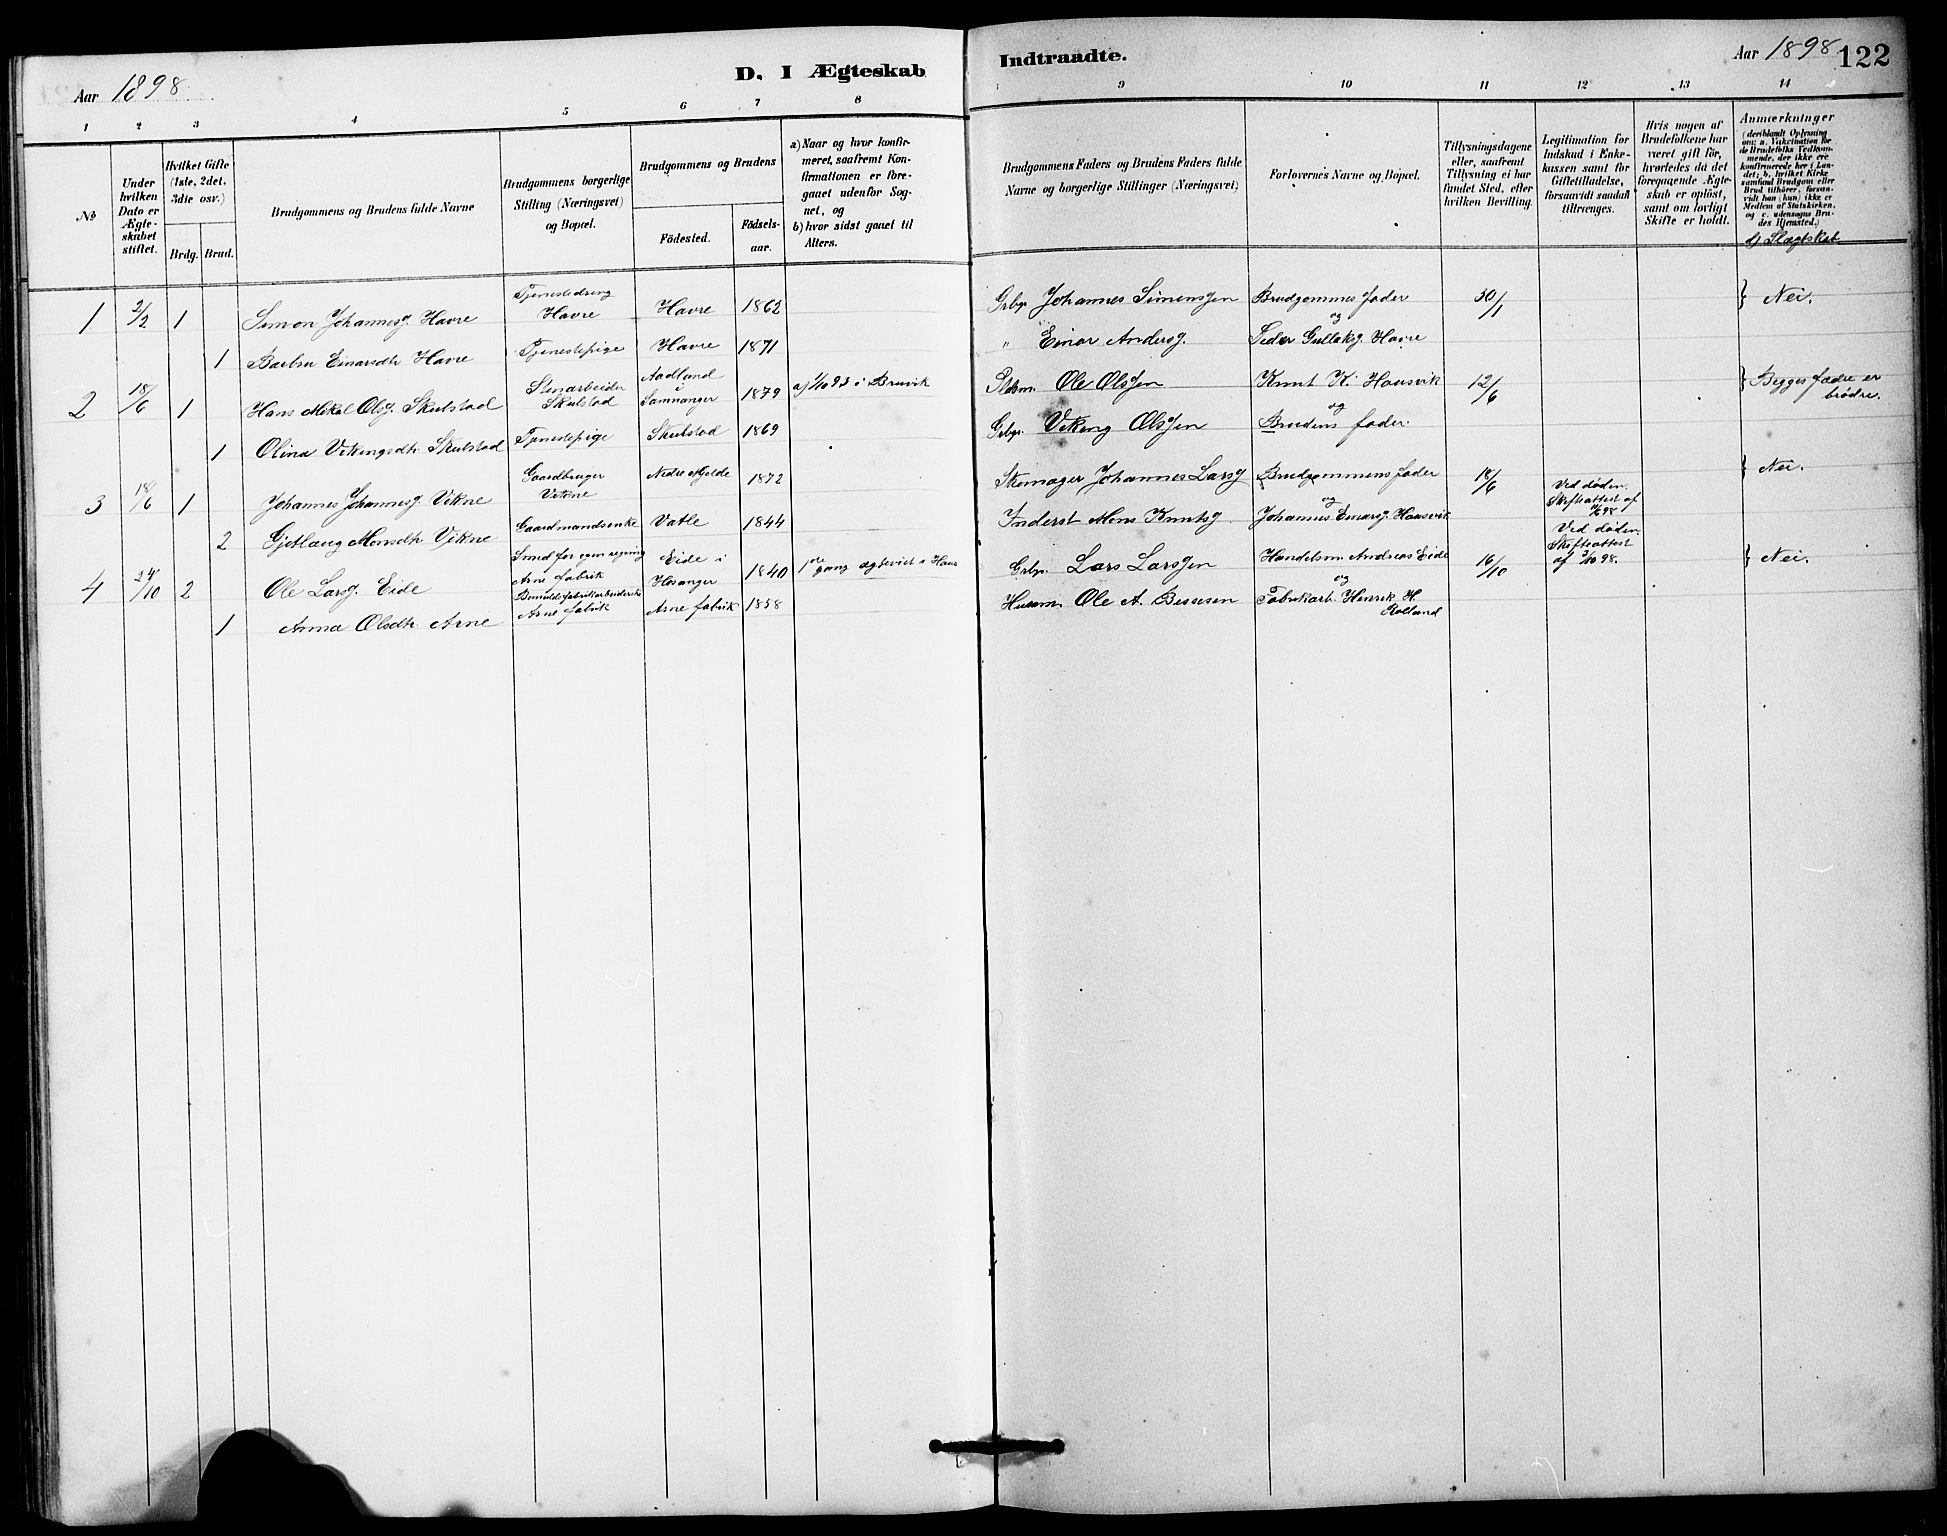 Aar 1898.
D. I Ægteskab
Indtraadte.
Aar 1898
122
1 2 3 4 5 6 7 8
9 10 11 12 13 14
No
Under hvilken Dato er Ægteskabet stiftet.
Hvilket Gifte (1ste, 2det, 3die osv.)
Brdg. Brud.
Brudgommens og Brudens fulde Navne
Brudgommens borgerlige Stilling (Næringsvei) og Bopæl.
Brudgommens og Brudens
Födested.
Födselsaar.
a) Naar og hvor konfirmeret, saafremt Konfirmationen er foregaaet udenfor Sognet, og
b) hvor sidst gaaet til Alters.
Brudgommens Faders og Brudens Faders fulde Navne og borgerlige Stillinger (Næringsvei)
Forlovernes Navne og Bopæl.
Tillysningsdagene eller, saafremt Tillysning ei har fundet Sted, efter hvilken Bevilling.
Legitimation for Indskud i Enkekassen samt for Giftetilladelse, forsaavidt saadan tiltrænges.
Hvis nogen af Brudefolkene har været gift för, hvorledes da det foregaaende Ægteskab er oplöst, samt om lovligt Skifte er holdt.
Anmærkninger
(deriblandt Oplysning om: a. Vakcination for de Brudefolks Vedkommende, der ikke ere konfirmerede her i Landet; b. hvilket Kirkesamfund Brudgom eller Brud tilhörer, forsaavidt han (hun) ikke er Medlem af Statskirken, og c. udensogns Brudes Hjemsted.)
d) Slægtskab
1 2/2 1 Simon Johannesg. Havre Tjenestedreng Havre Havre 1862 Grbgr. Johannes Simonsen Brudgommes fader 30/1 } Nei.
og
1 Barbra Einarsdtr Havre Tjenestepige Havre 1871 " Einar Andersg. Peder Gullaksg. Havre
2 18/6 1 Hans Mikal Olsg. Skulstad Stenarbeider Skulstad Aadland i Samnanger 1879 a) 1/10 93 i Bruvik Ole Olssen Knut K. Hausvik 12/6 } Begges fædre er brödre.
og
1 Olina Vikingsdtr. Skulstad Tjenestepige Skulstad 1869 Grbgr. Viking Olssen Brudens fader.
3 18/6 1 Johannes Johannesg. Vikne Gaardbruger Vikne Nedre Mjelde 1872 Skomager Johannes Larsg. Brudgommens fader 18/6 Ved döden. Skifteattest af /6 98 } Nei.
og
2 Gjetlaug Monsdtr. Vikne Gaardmandsenke Vatle 1844 Inderst Mons Knutsg. Johannes Einarsg. Hausvik
4 24/10 2 Ole Larsg. Eide Smed for egen regning Arne fabrik Eide i Hosanger 1840 1ste gang ægteviet i Haus Grbgr. Lars Larssen Handelsm. Andreas Eide 16/10 Ved döden. Skifteattest af 3/10 98. } Nei.
og
1 Anna Olsdtr. Arne Bomuldsfabrikarbeiderske Arne fabrik Arne fabrik 1858 Husm. Ole A. Bessesen Fabrikarb. Henrik H. Rolland